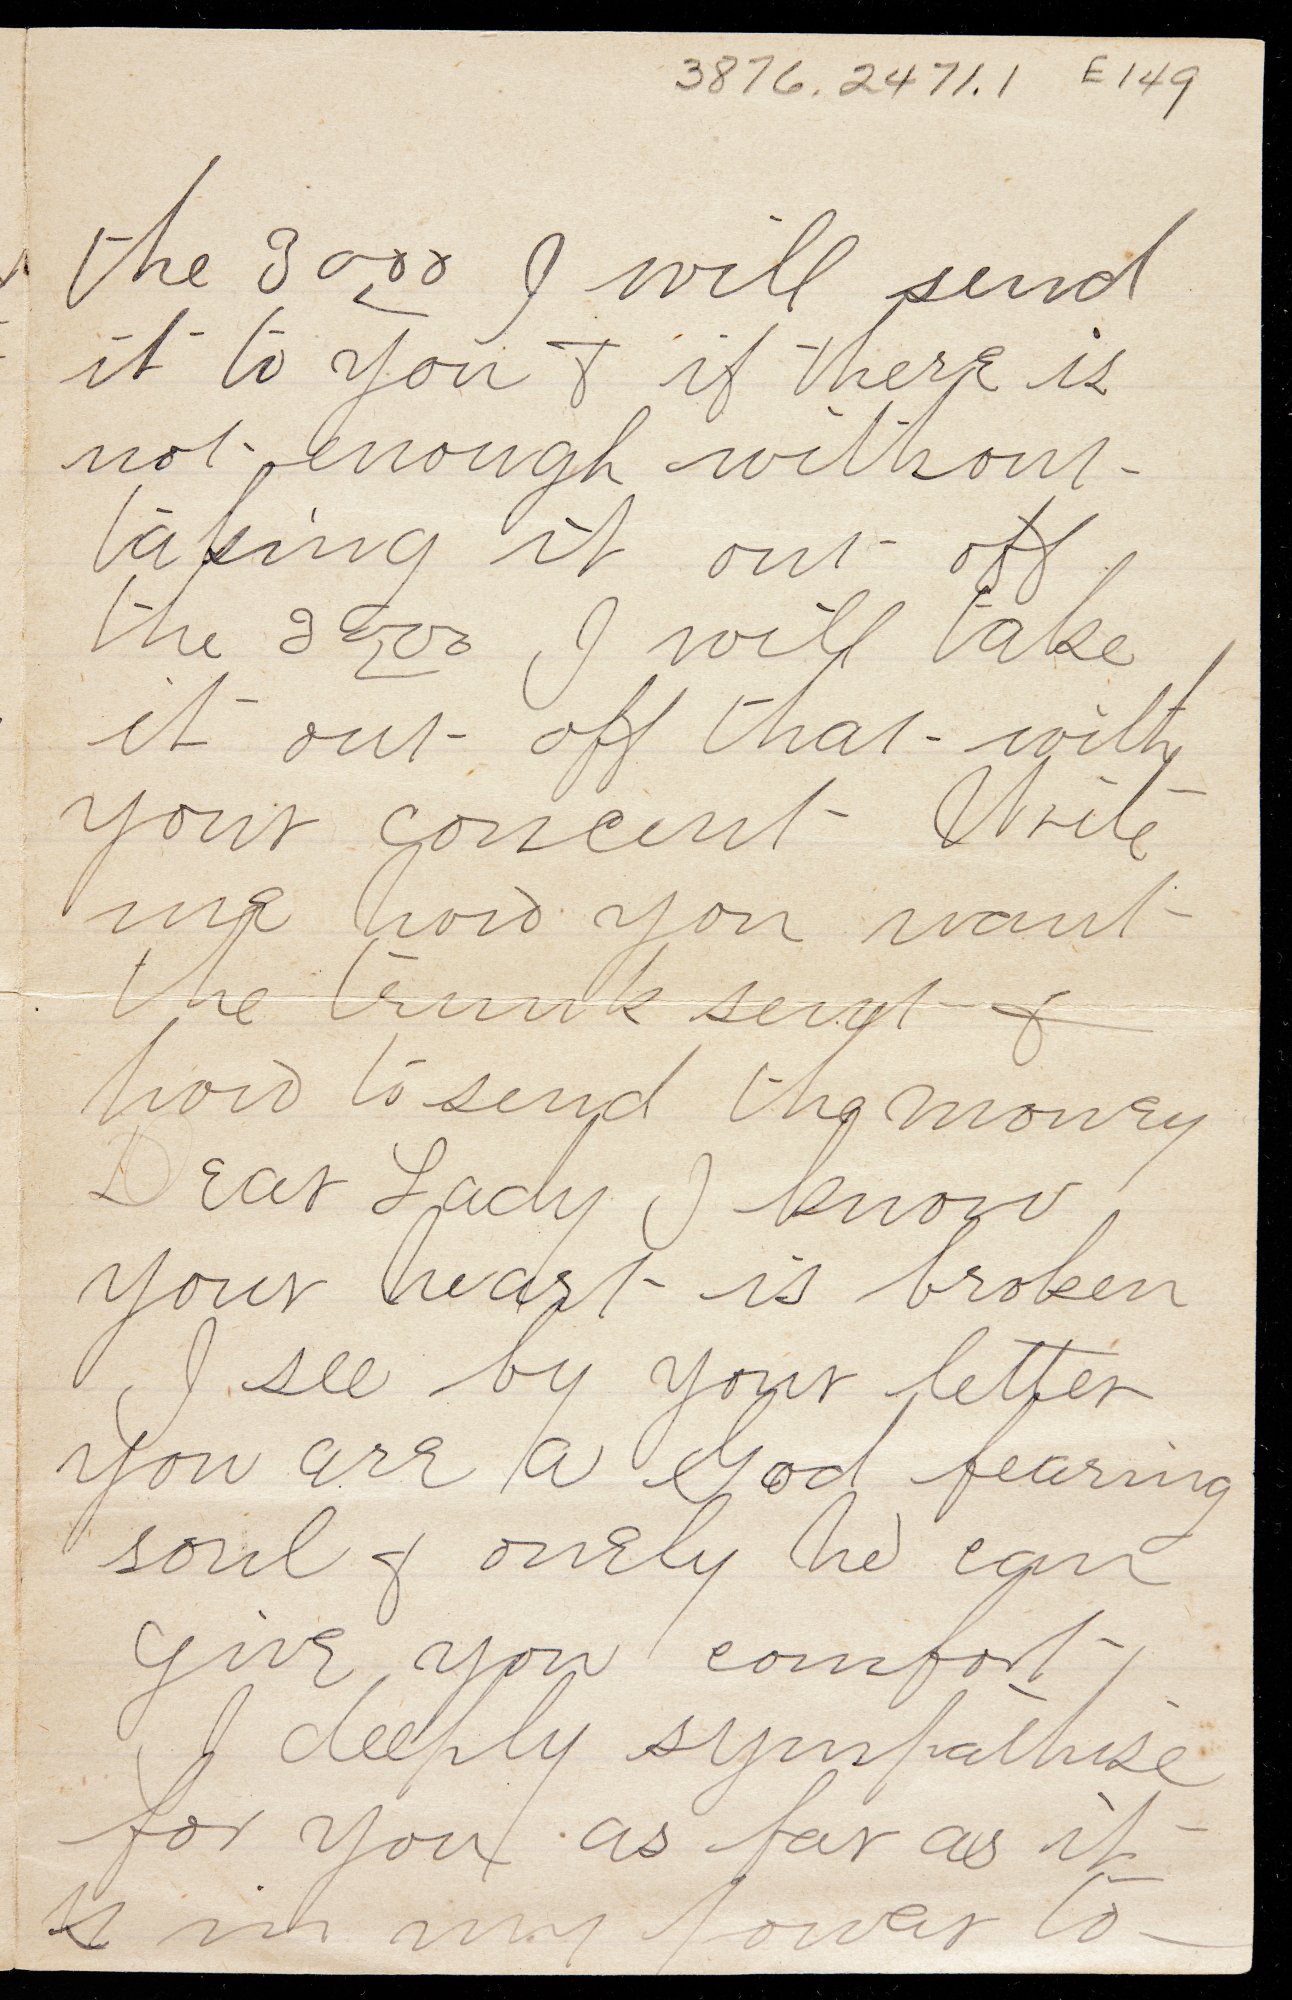 3876.2471.1 E149
the 30.00 I will send
it to you & if there is
not enough without
taking it out off
the 30.00 I will take
it out off that with
your concent Write
me how you want
the trunk sent &
how to send the money
Dear Lady I know
your heart is broken
I see by your letter
you are a God fearing
soul & onely he can
give you comfort
I deeply sympathise
for you as far as it
is in my power to